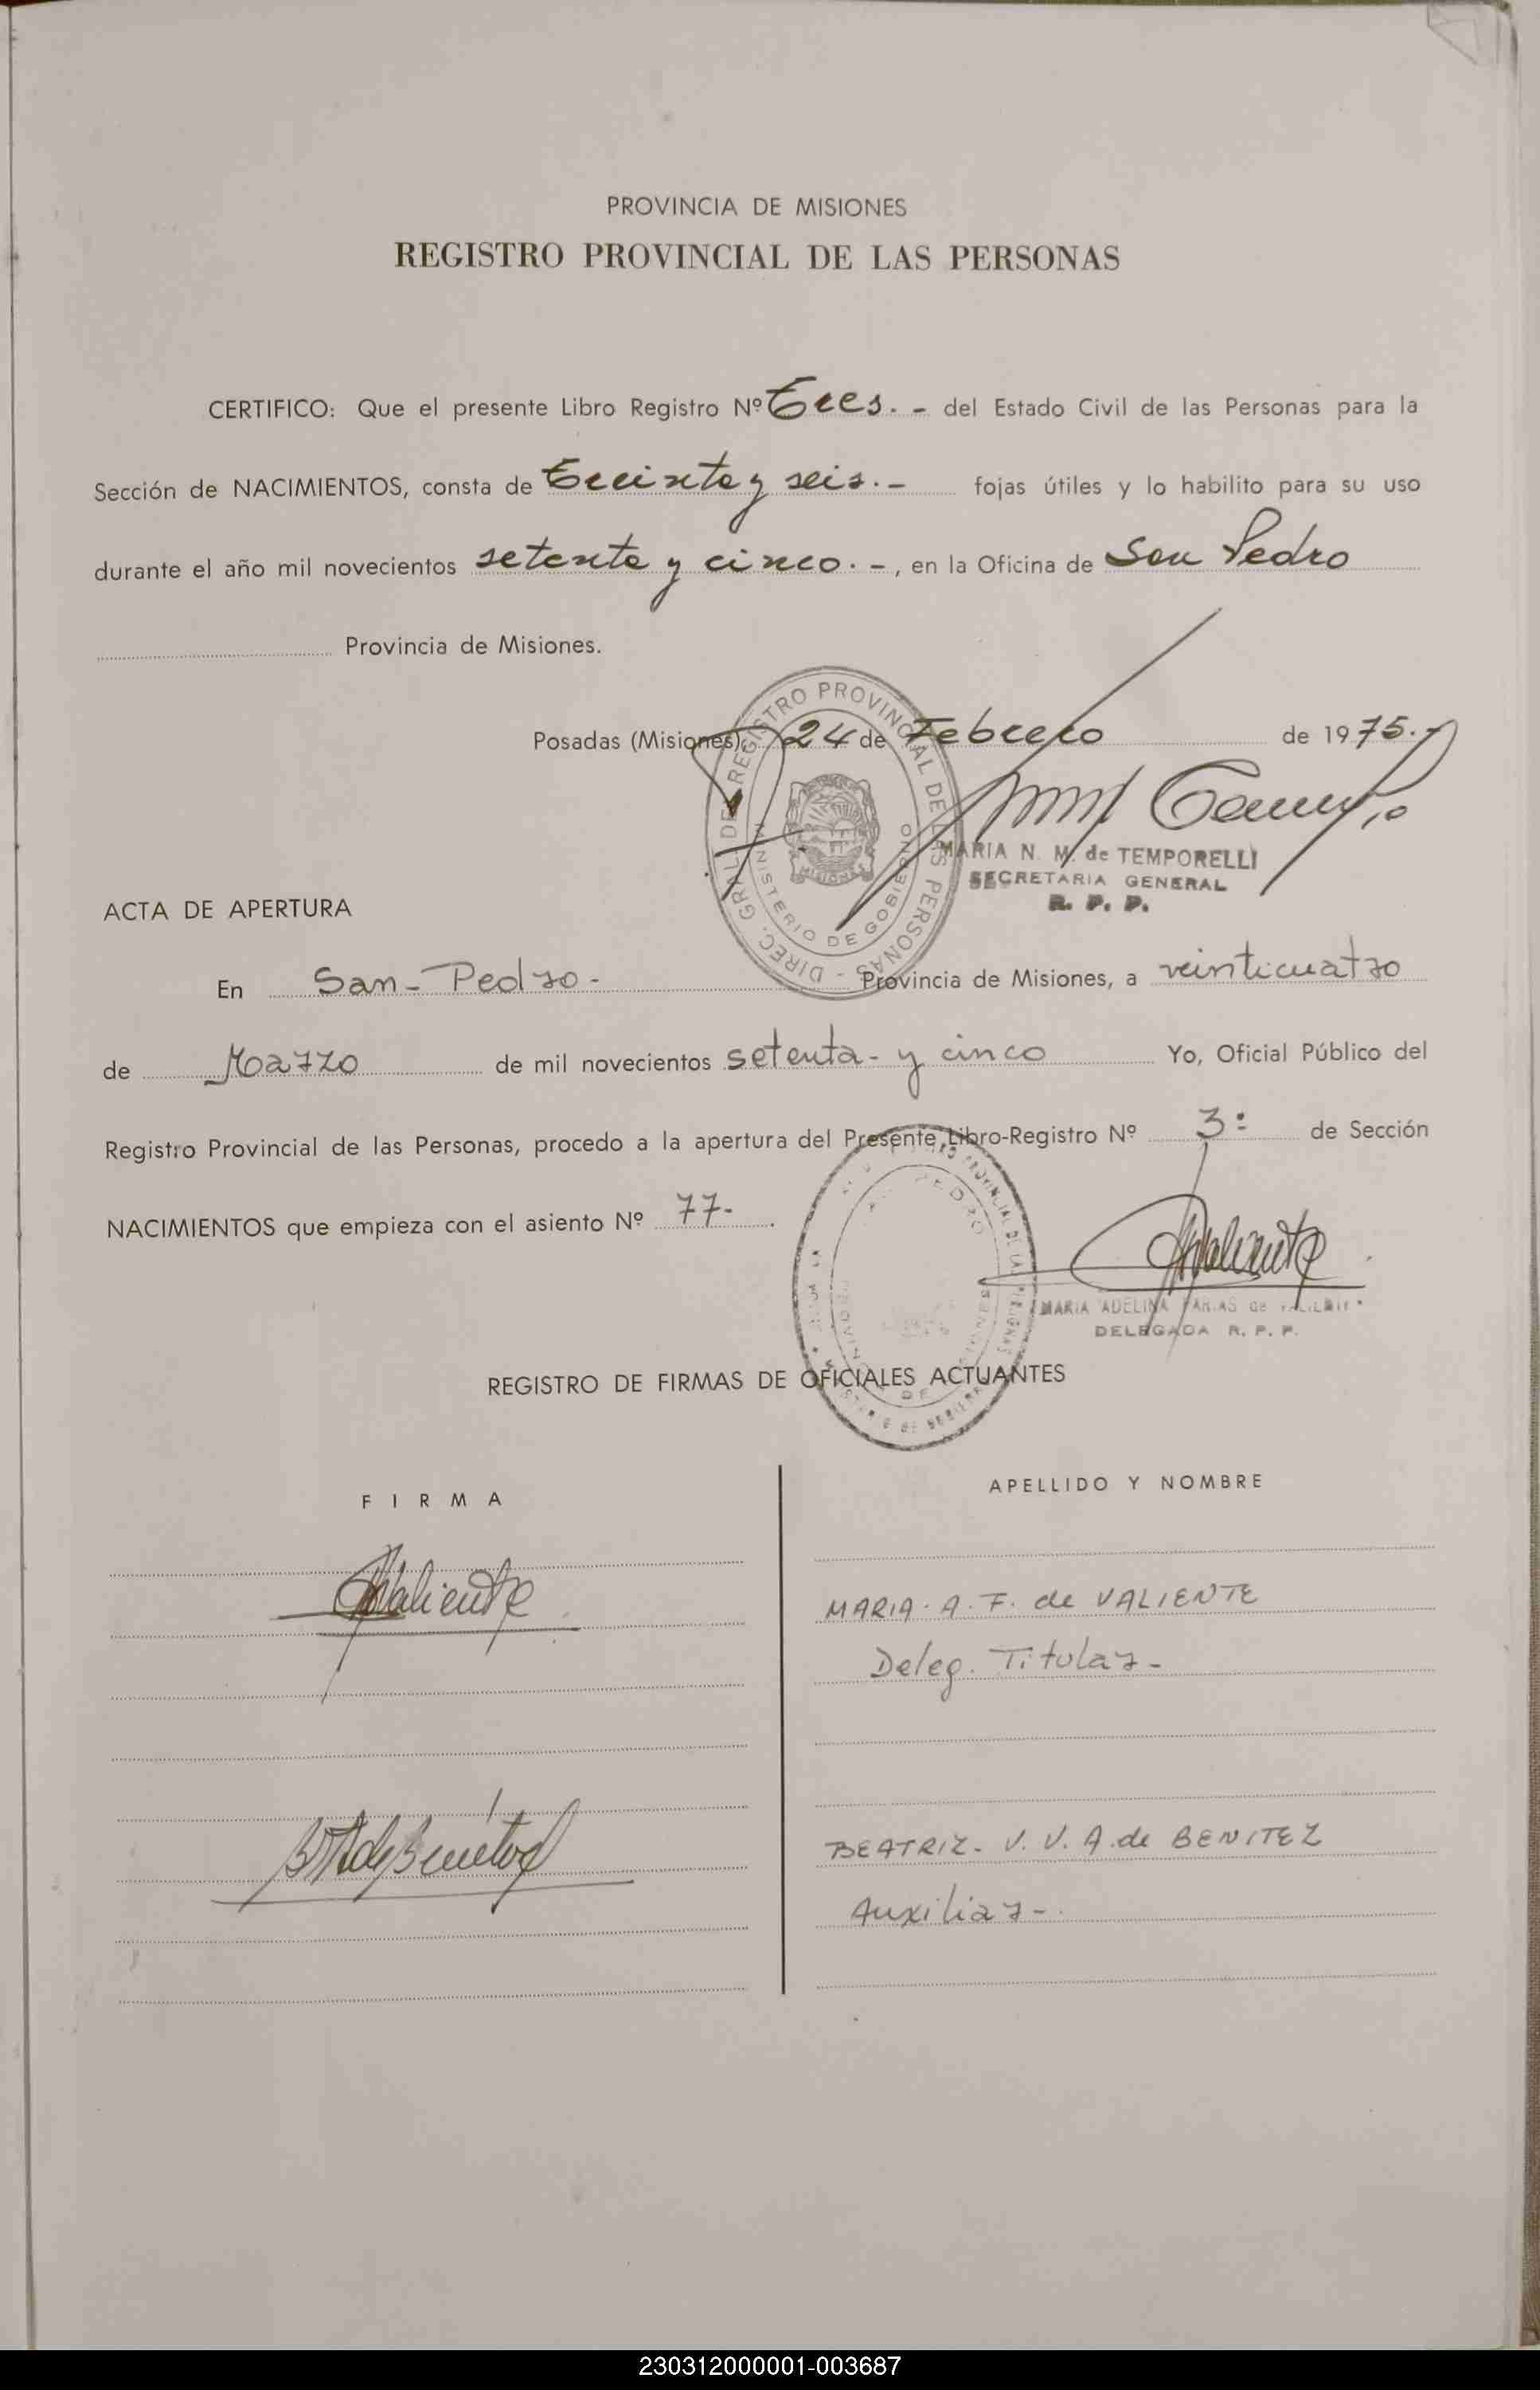 PROVINCIA DE MISIONES
REGISTRO PROVINCIAL DE LAS PERSONAS
CERTIFICO: Que el presente Libro Registro Nº Tres. - del Estado Civil de las Personas para la
Sección de NACIMIENTOS, consta de Treinta y seis. - fojas útiles y lo habilito para su uso
durante el año mil novecientos setenta y cinco. -, en la Oficina de San Pedro
Provincia de Misiones.
Posadas (Misiones), 24 de Febrero de 1975. -
DIREC. GRAL. DEL REGISTRO PROVINCIAL DE LAS PERSONAS -
MINISTERIO DE GOBIERNO
MISIONES
MARIA N. M. de TEMPORELLI
SECRETARIA GENERAL
R. P. P.
ACTA DE APERTURA
En San - Pedro - Provincia de Misiones, a veinticuatro
de Marzo de mil novecientos setenta - y cinco Yo, Oficial Público del
Registro Provincial de las Personas, procedo a la apertura del Presente Libro-Registro Nº 3: de Sección
NACIMIENTOS que empieza con el asiento Nº 77- .
MARIA ADELINA FARIAS de VALIENTE
DELEGADA R. P. P.
REGISTRO DE FIRMAS DE OFICIALES ACTUANTES
FIRMA
APELLIDO Y NOMBRE
Valiente
MARIA. A. F. de VALIENTE
Deleg. Titular -
BEATRIZ - V. V. A. de BENITEZ
Auxiliar -.
230312000001-003687